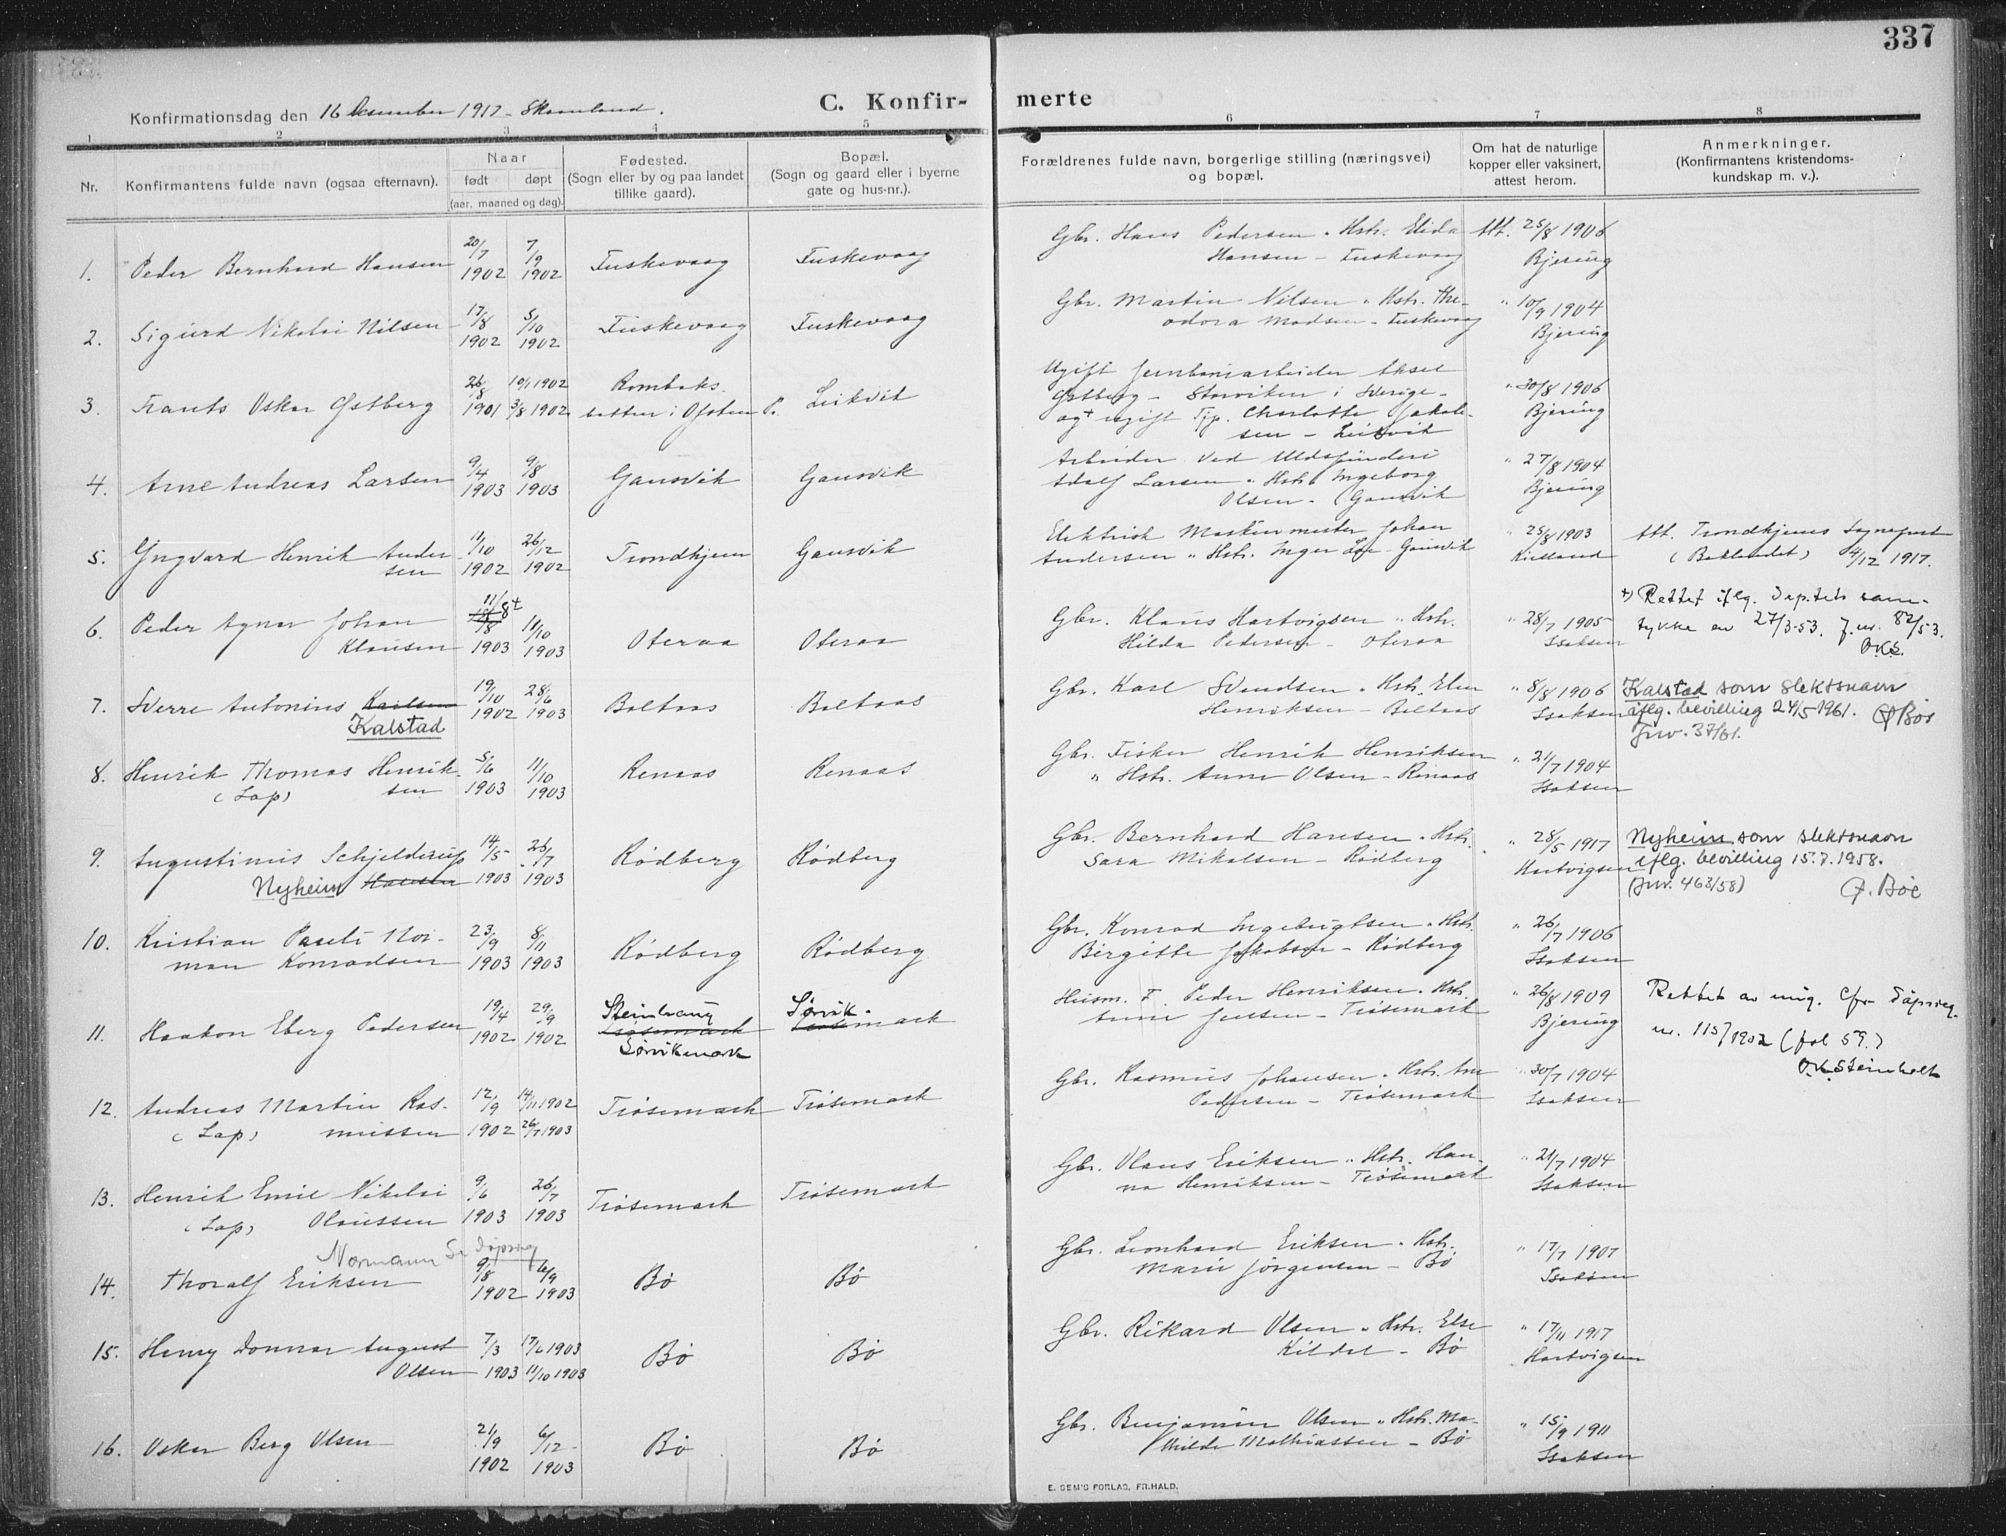 337
Konfirmationsdag den 16 Desember 1917 - Skaanland.
C. Konfir- merte
1 2 3 4 5 6 7 8
Nr.
Konfirmantens fulde navn (ogsaa efternavn).
Naar
født døpt
(aar, maaned og dag).
Fødested.
(Sogn eller by og paa landet
tillike gaard).
Bopæl.
(Sogn og gaard eller i byerne
gate og hus-nr.).
Forældrenes fulde navn, borgerlige stilling (næringsvei)
og bopæl.
Om hat de naturlige
kopper eller vaksinert,
attest herom.
Anmerkninger.
(Konfirmantens kristendoms-
kundskap m. v.).
1. Peder Bernhard Hansen 20/7 1902 7/9 1902 Fuskevaag Fuskevaag Gbr. Hans Pedersen " Hstr. Elida Att. 25/8 1906
Hansen - Fuskevaag Bjering
2. Sigurd Nikolai Nilsen 17/8 1902 5/10 1902 Fuskevaag Fuskevaag Gbr. Martin Nilsen " Hstr. The- " 10/9 1904
odora Madsen - Fuskevaag Bjering
3. Frants Oskar Østberg 26/8 1901 10/1 1902 3/8 1902 Rombaks-
botten i Ofoten P. Leikvik Ugift jernbanearbeider Aksel
Østberg - Storviken i Sverige - " 30/8 1906
og ugift Tjp. Charlotte Jakob- Bjering
sen - Leikvik
4. Arne Andreas Larsen 9/4 1903 9/8 1903 Gausvik Gausvik Arbeider ved Uldspinderi " 27/8 1904
Adolf Larsen " Hstr. Ingeborg Bjering
Olsen - Gausvik
5. Yngvard Henrik Ander- 11/10 1902 26/12 1902 Trondhjem Gausvik Elektrisk Maskinmester Johan " 25/8 1903 Att. Trondhjems Sogneprest
sen Andersen " Hstr. Inger Lae - Gausvik Kielland (Baklandet) 4/12 1917.
6. Peder Agnar Johan 11/8+ 18/8 1903 11/10 1903 Oteraa Oteraa Gbr. Klaus Hartvigsen " Hstr. " 28/7 1905 +) Rettet iflg. Dep.tets sam-
Klausen Hilda Pedersen - Oteraa Isaksen tykke av 27/3-53. J.nr. 82/53.
O.K.S.
7. Sverre Antonius Karlsen 19/10 1902 28/6 1903 Boltaas Boltaas Gbr. Karl Svendsen " Hstr. Elen " 8/8 1906 Kalstad som slektsnavn
Kalstad Henriksen - Boltaas Isaksen iflg. bevilling 24/5-1961. Q Bøe
Jnr. 37/61.
8. Henrik Thomas Henrik- 5/6 1903 11/10 1903 Renaas Renaas Gbr. Fisker Henrik Henriksen " 21/7 1904
(Lap) sen " Hstr. Anne Olsen - Renaas Isaksen
9. Augustinus Schjelderup 14/5 1903 26/7 1903 Rødberg Rødberg Gbr. Bernhard Hansen " Hstr. " 28/5 1917 Nyheim som slektsnavn
Nyheim Hansen Sara Mikalsen - Rødberg Hartvigsen iflg. bevilling 15.7.1958.
(Jnr. 463/58) Q. Bøe
10. Kristian Pareli Nor- 23/9 1903 8/11 1903 Rødberg Rødberg Gbr. Konrad Ingebrigtsen " Hstr. " 26/7 1906
man Konradsen Birgitte Jakobsen - Rødberg Isaksen
11. Haakon Eberg Pedersen 19/4 1902 29/9 1902 Steinvang Sørvikmark Sørvik- mark Husm. F. Peder Henriksen " Hstr. " 26/8 1909 Rettet av mig. Cfr. Dåpsreg.
Anne Jensen - Trösemark Bjering nr. 115/1902 (fol 59.)
O.K. Steinholt
12. Andreas Martin Ras- 12/9 1902 14/11 1902 26/7 1903 Trösemark Trösemark Gbr. Rasmus Johansen " Hstr. Ane " 30/7 1904
(Lap) mussen Pedersen - Trösemark Isaksen
13. Henrik Emil Nikolai 9/6 1903 26/7 1903 Trösemark Trösemark Gbr. Olaus Eriksen " Hstr. Han- " 21/7 1904
(Lap) Olaussen na Henriksen - Trösemark Isaksen
Normann Se dåpsreg
14. Thoralf Eriksen 9/8 1902 6/9 1903 Bø Bø Gbr. Leonhard Eriksen " Hstr. " 17/7 1907
Marie Jørgensen - Bø Isaksen
15. Henry Donnar August 7/3 1903 17/6 1903 11/10 1903 Bø Bø Gbr. Rikard Olsen " Hstr. Else " 17/11 1917
Olsen Kildal - Bø Hartvigsen
16. Oskar Berg Olsen 21/9 1902 6/12 1903 Bø Bø Gbr. Benjamin Olsen " Hstr. Ma- " 15/9 1911
thilde Mathiassen - Bø Isaksen
E. SEM'S FORLAG, FR.HALD.